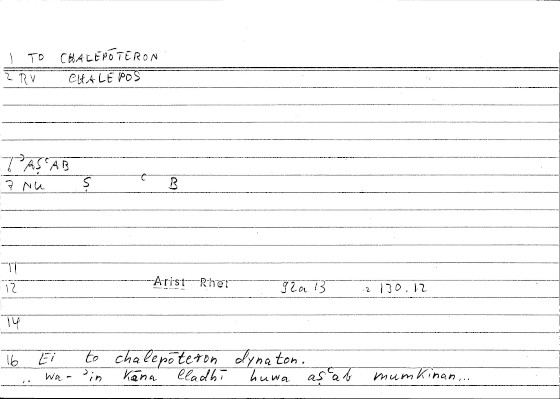 1 TO CHALEPŌTERON
2 RV CHALEPOS
6 ʾAṢʿAB
7 NU Ṣ ʿ B
11
12 Arist Rhet 92a13 = 130.12
14
16 Ei to chalepōteron dynaton.
.. wa-ʾin kāna lladhī huwa aṣʿab mumkinan...